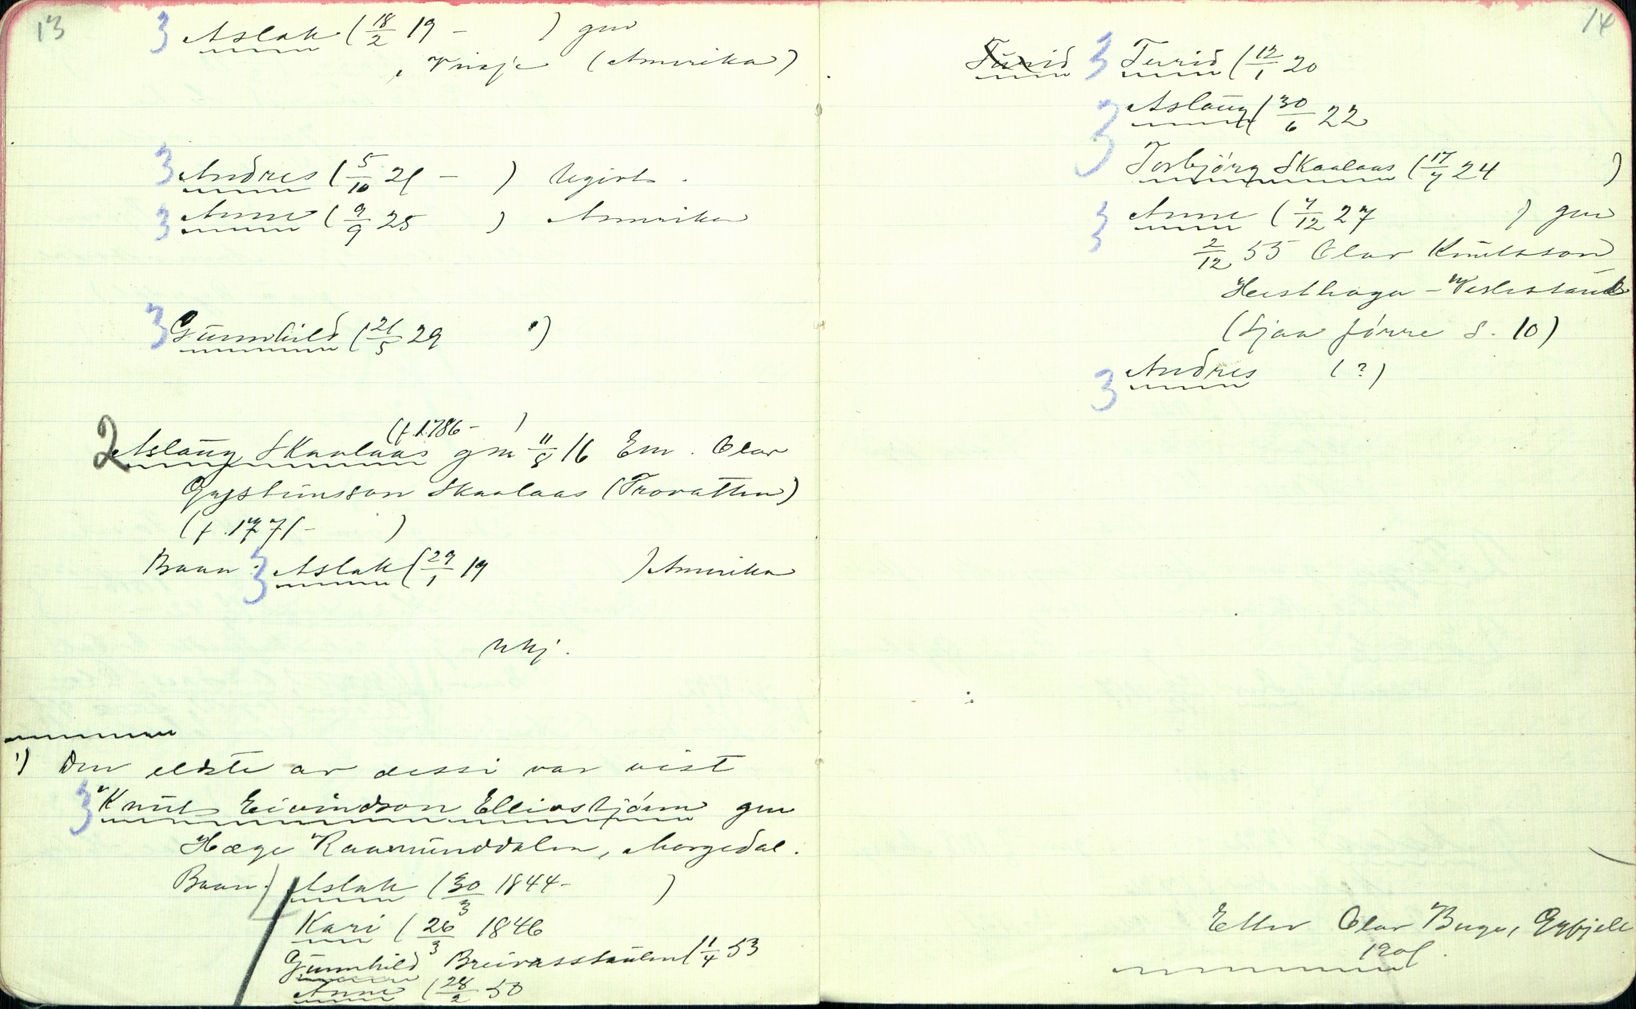 13
3 Aslak (18/2 19 - ) gm
, Vinje (Amerika)
3 Andres (5/10 21 - ) Ugivt.
3 Anne (9/9 25 ) Amerika
3 Gunnhild (21/5 29 )
(f. 1786 - )
2 Aslaug Skaalaas gm 11/8 16 Em. Olav
Gystunsson Skaalaas (Trovatten)
(f. 1771 - )
Baan: 3 Aslak (29/1 19 ) Amerika
1) Den eldste av dessi var vist
3 Knut Eivindson Elliastjønn gm
Hæge Raamunddalen, Morgedal.
Baan: Aslak (30/3 1844 - )
Kari (26/3 1846
Gunnhild Breivasstaulen (1/4 53
Anne (28/2 50
14
Turid 3 Turid (12/1 20
3 Aslaug (30/6 22
3 Torbjørg Skaalaas (17/7 24 )
3 Anne (7/12 27 ) gm
2/12 55 Olav Knutsson
Heisthaga - Veslestaul
(Sjaa førre s. 10)
3 Andres (?)
Etter Olav Bugo, Øyfjell
1901.